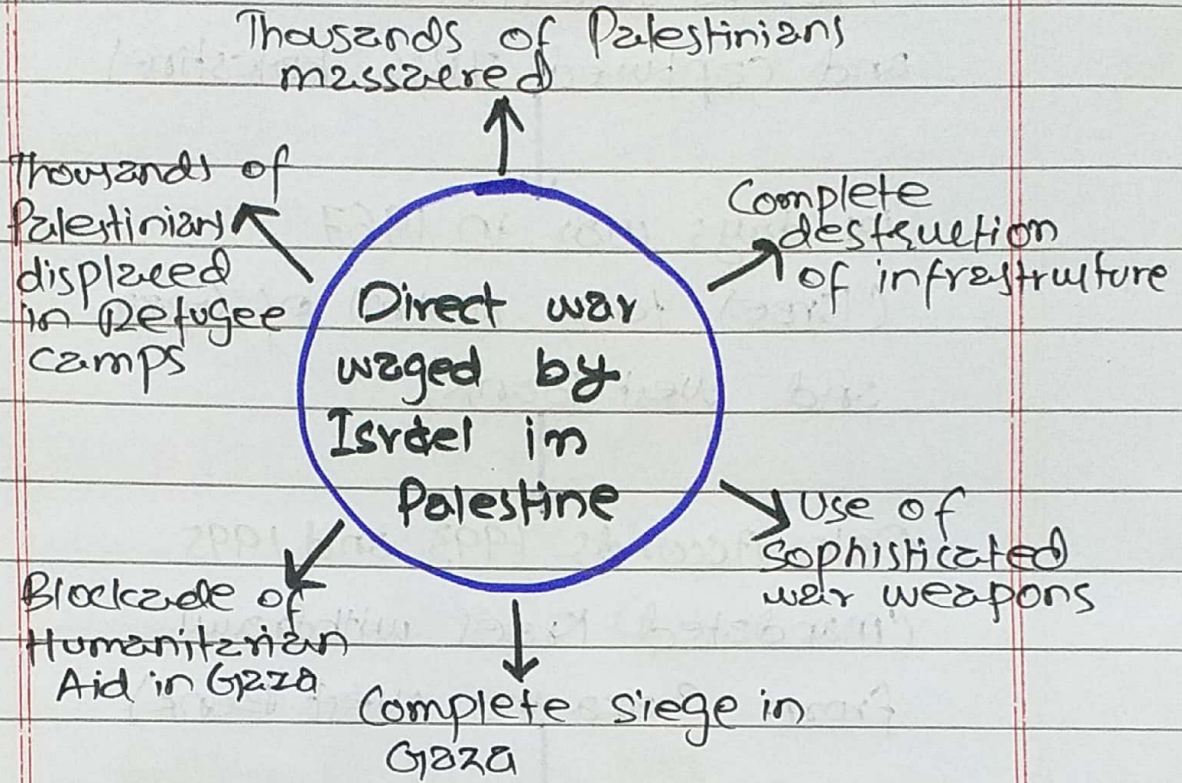 Thousands of Palestinians
massacred
Thousands of
Palestinians
displaced
in Refugee
camps
Complete
destruction
of infrastructure
Direct war
waged by
Israel in
Palestine
Use of
sophisticated
war weapons
Blockade of
Humanitarian
Aid in Gaza
Complete siege in
Gaza